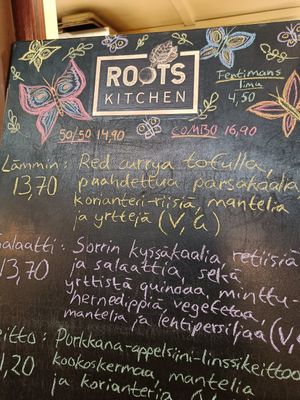 ROOTS
KITCHEN
Fentimans
limu
4,50
50/50 14,90
COMBO 16,90
Lämmin: Red currya tofulla,
13,70 paahdettua parsakaalia,
korianteri-riisiä, mantelia
ja yrttejä (V, G)
Salaatti: Sorrin kyssäkaalia, retiisiä
13,70 ja salaattia, sekä
yrttistä quinoaa, minttu-
hernedippiä, vegefetaa,
mantelia ja lehtipersiljaa (V,
eitto: Porkkana-appelsiini-linssikeittoa
,20 kookoskermaa, mantelia
ja korianteria